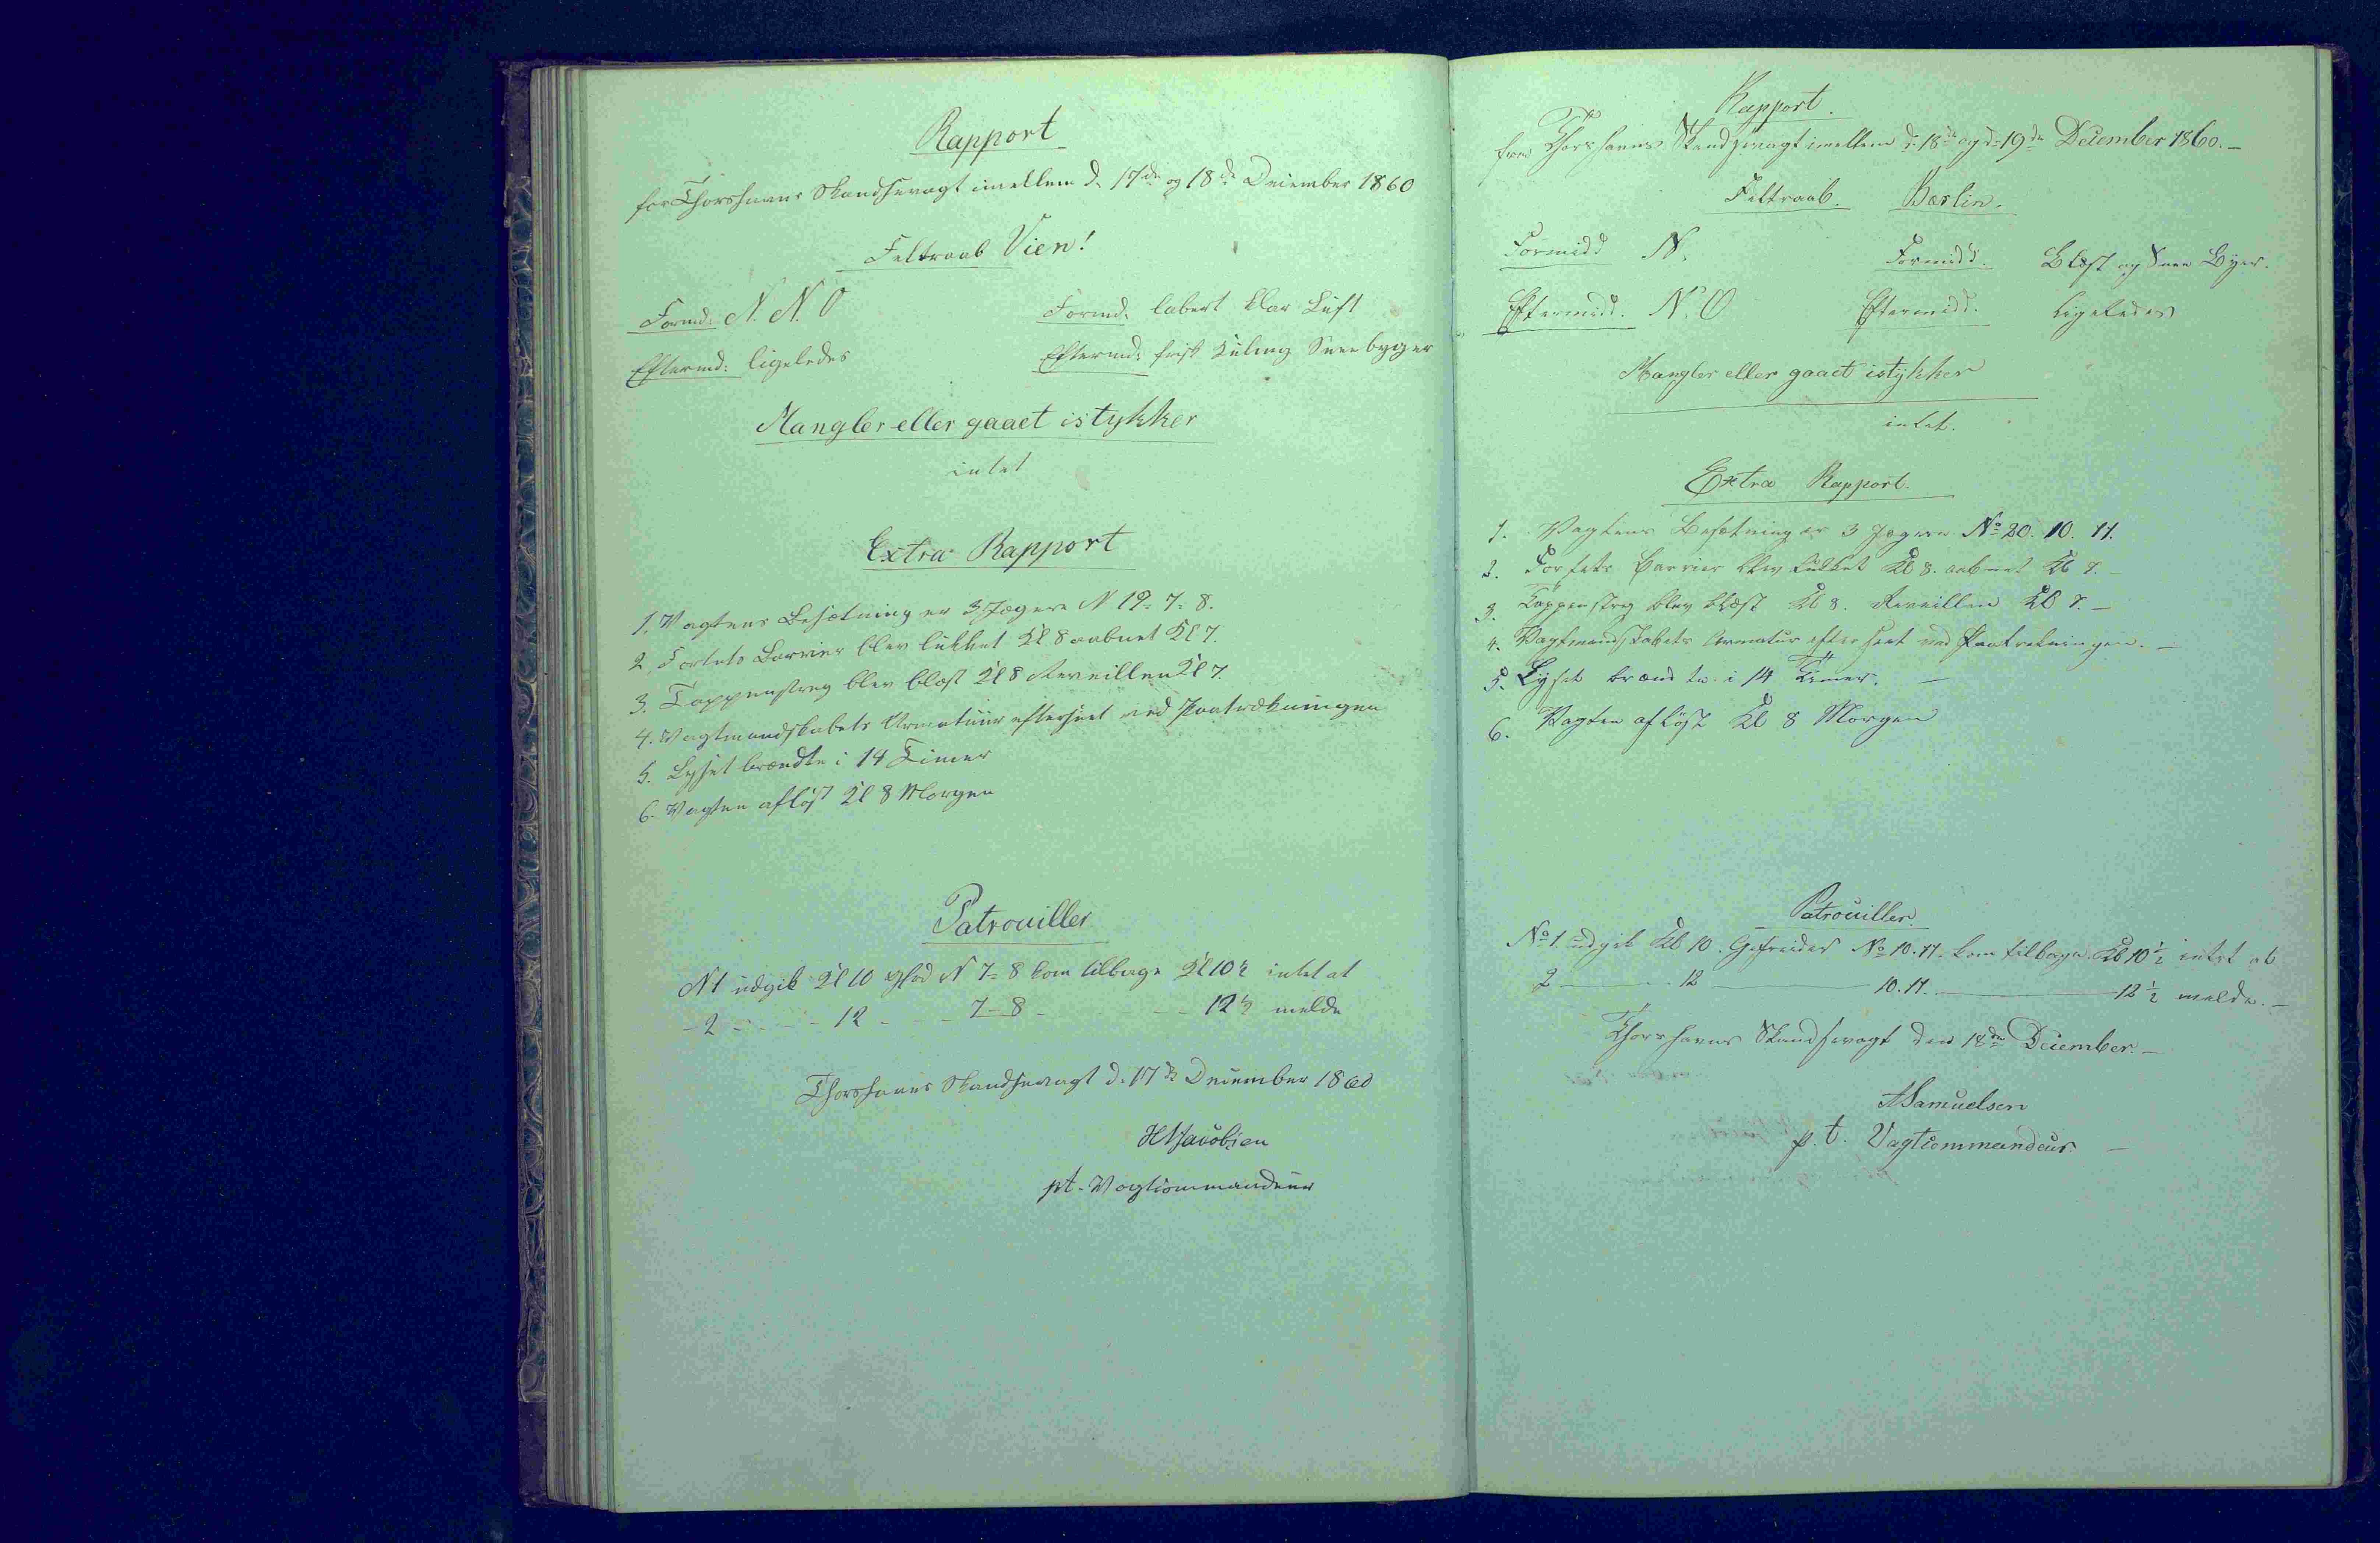 Rapport
for Thorshavns Skandsevagt imellem d. 17de og 18de December 1860
Feltraab Vien!
Formd: N. N. O
Formd. labert klar Luft
Eftermd: ligeledes
Eftermd: frisk Kuling Sneebyger
Mangler eller gaaet istykker
intet
Extra Rapport
1. Vagtens Besætning er 3 Jægere N 19- 7- 8.
2. Fortets Barrier blev lukket Kl 8 aabnet Kl 7.
3. Tappenstreg blev blæst Kl 8 Reveillen Kl 7.
4. Vagtmandskabets Armatuur efterseet ved Paatrækningen
5. Lyset brændte i 14 Timer
6. Vagten afløst Kl 8 Morgen
Patrouiller
N1 udgik Kl 10 N 7- 8 kom tilbage Kl 10½ intet at
- 2 - - - - 12 - - - 7- 8 - - - 12½ melde
Thorshavns Skandsevagt d. 17de December 1860
HNJacobsen
pt. Vagtcommandeur
Rapport.
for Thorshavns Skandsevagt imellem d. 18de og d. 19de December 1860.-
Feltraab. Berlin.
Formidd N.
Formidd. Blæst og Snee Byer.
Eftermidd. N. O
Eftermidd. ligeledes
Mangler eller gaaet istykker
intet.
Extra Rapport.
1. Vagtens Besætning er 3 Jægere No 20. 10. 11.
2. Fortets Barrier blev lukket Kl 8. aabnet Kl 7.-
3. Tappenstreg blev blæst Kl 8. Reveillen Kl 7.-
4. Vagtmandskabets Armatur efterseet ved Paatrækningen.-
5. Lyset brændte i 14 Timer.-
6. Vagten afløst Kl 8 Morgen
Patrouiller.
No 1 udgik Kl 10. Gefreider No 10. 11. kom tilbage Kl 10½ intet at
2 - 12 - 10. 11. - 12½ melde.-
Thorshavns Skandsevagt den 18de December.-
Samuelsen
p. t. Vagtcommandeur. -